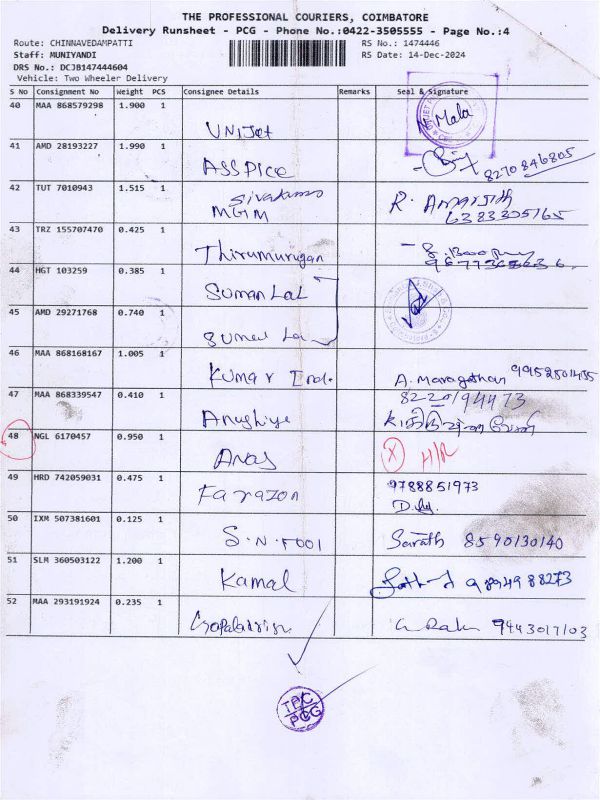 THE PROFESSIONAL COURIERS, COIMBATORE
Delivery Runsheet - PCG - Phone No.:0422-3505555 - Page No.:4
Route: CHINNAVEDAMPATTI
RS No.: 1474446
Staff: MUNIYANDI
RS Date: 14-Dec-2024
DRS No.: DCJB147444604
Vehicle: Two Wheeler Delivery
S No Consignment No Weight PCS Consignee Details Remarks Seal & Signature
40 MAA 868579298 1.900 1
UNIJet
N. Mala
41 AMD 28193227 1.990 1
ASSPICE
8270846805
42 TUT 7010943 1.515 1
MGM
R.
6383305165
43 TRZ 155707470 0.425 1
Thirumurugan
44 HGT 103259 0.385 1
SUMAN LAL
45 AMD 29271768 0.740 1
46 MAA 868168167 1.005 1
KUMAR Ind.
A. Maragathan
47 MAA 868339547 0.410 1
8220194473
48 NGL 6170457 0.950 1
ANAS
X H/R
49 HRD 742059031 0.475 1
Farazon
9788851973
50 IXM 507381601 0.125 1
S.N.TOOl
Sarath 8590130140
51 SLM 360503122 1.200 1
Kamal
9894988273
52 MAA 293191924 0.235 1
9443017103
TPC
PCG